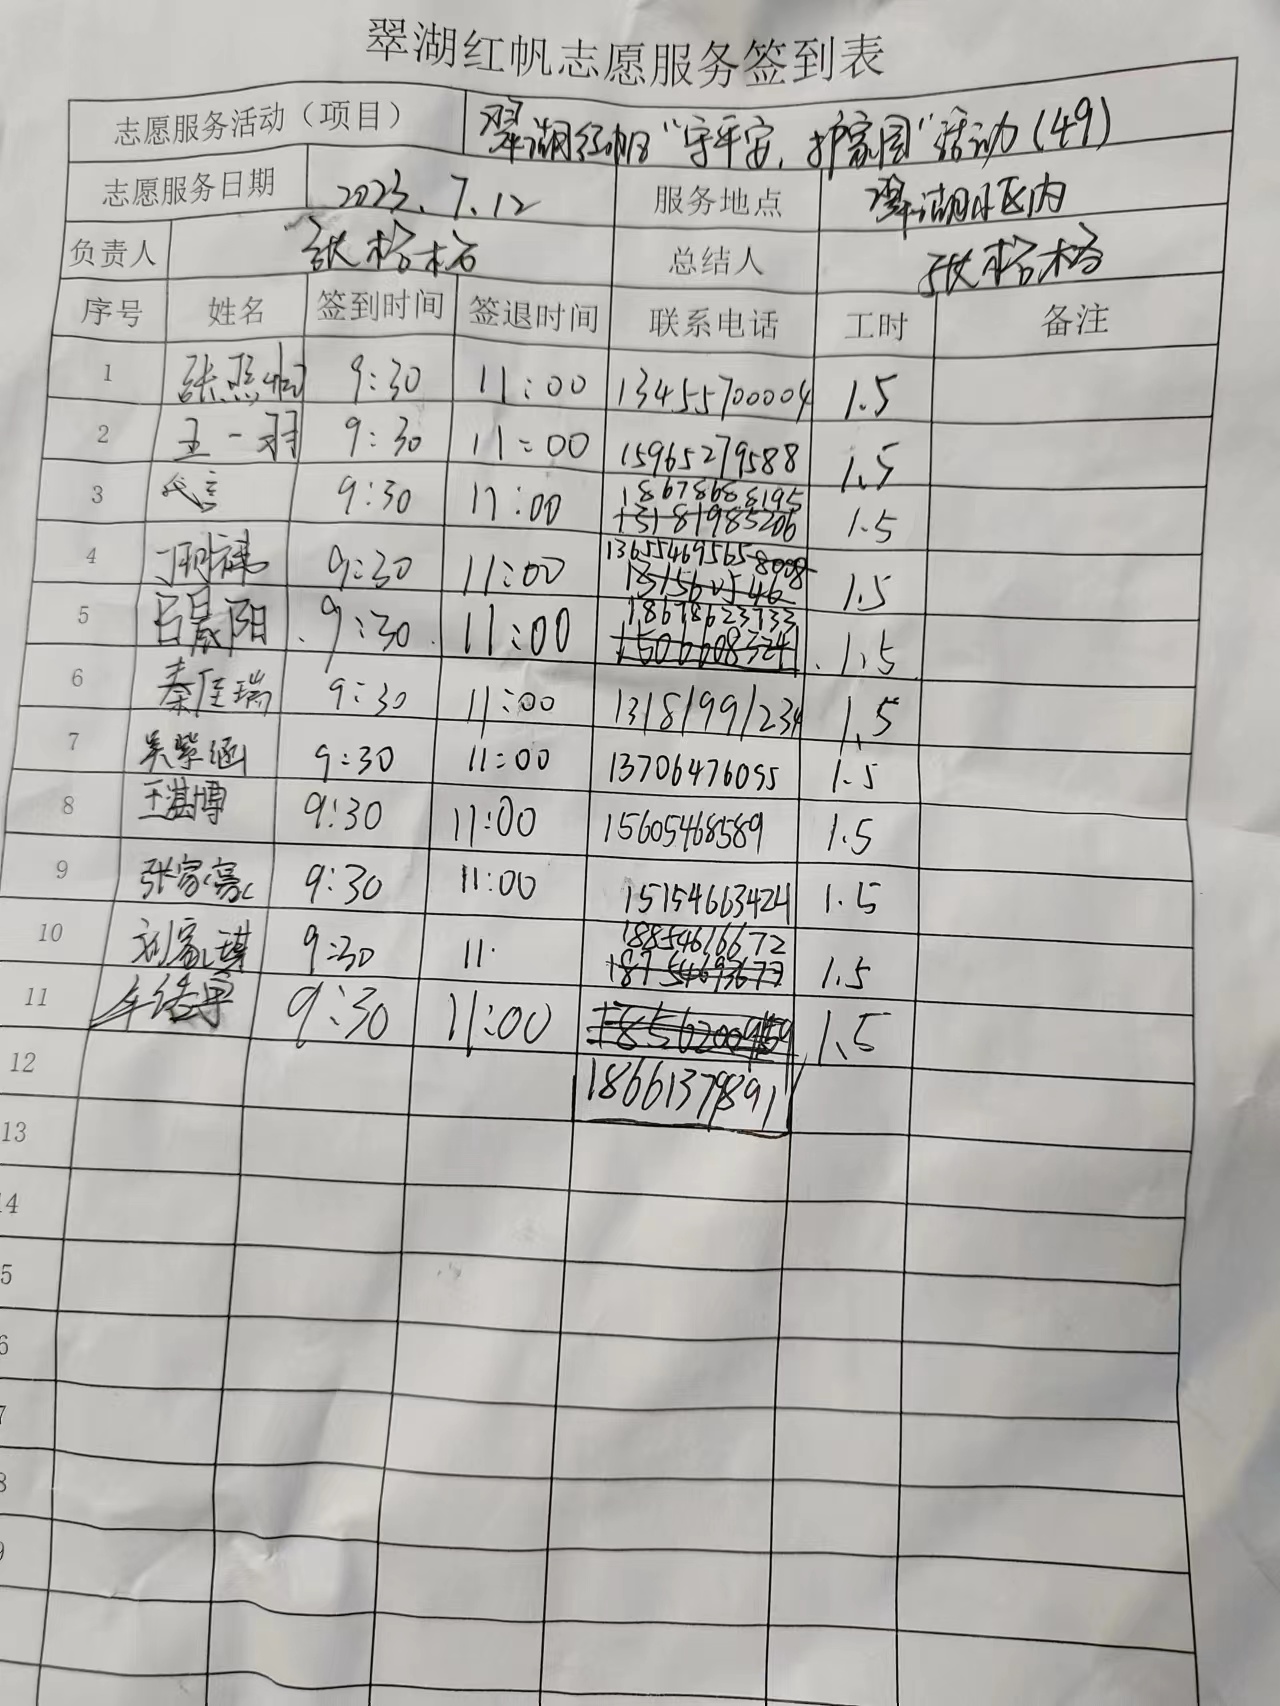 翠湖红帆志愿服务签到表
志愿服务活动（项目） 翠湖红帆“守平安，护家园”活动(49)
志愿服务日期 2023.7.12 服务地点 翠湖小区内
负责人 张格格 总结人 张格格
序号 姓名 签到时间 签退时间 联系电话 工时 备注
1 张 9:30 11:00 13455700004 1.5
2 王一羽 9:30 11:00 15965279588 1.5
3 9:30 11:00 18678688195 1.5
4 丁 9:30 11:00 13655469565 1.5
5 吕晟阳 9:30 11:00 18678623733 1.5
6 秦佳瑞 9:30 11:00 13181991234 1.5
7 吴紫涵 9:30 11:00 13706476055 1.5
8 王湛博 9:30 11:00 15605468589 1.5
9 张家豪 9:30 11:00 15154663424 1.5
10 刘家琪 9:30 11: 18854616672 1.5
11 9:30 11:00 1.5
12 18661379891
13
14
5
6
7
8
9